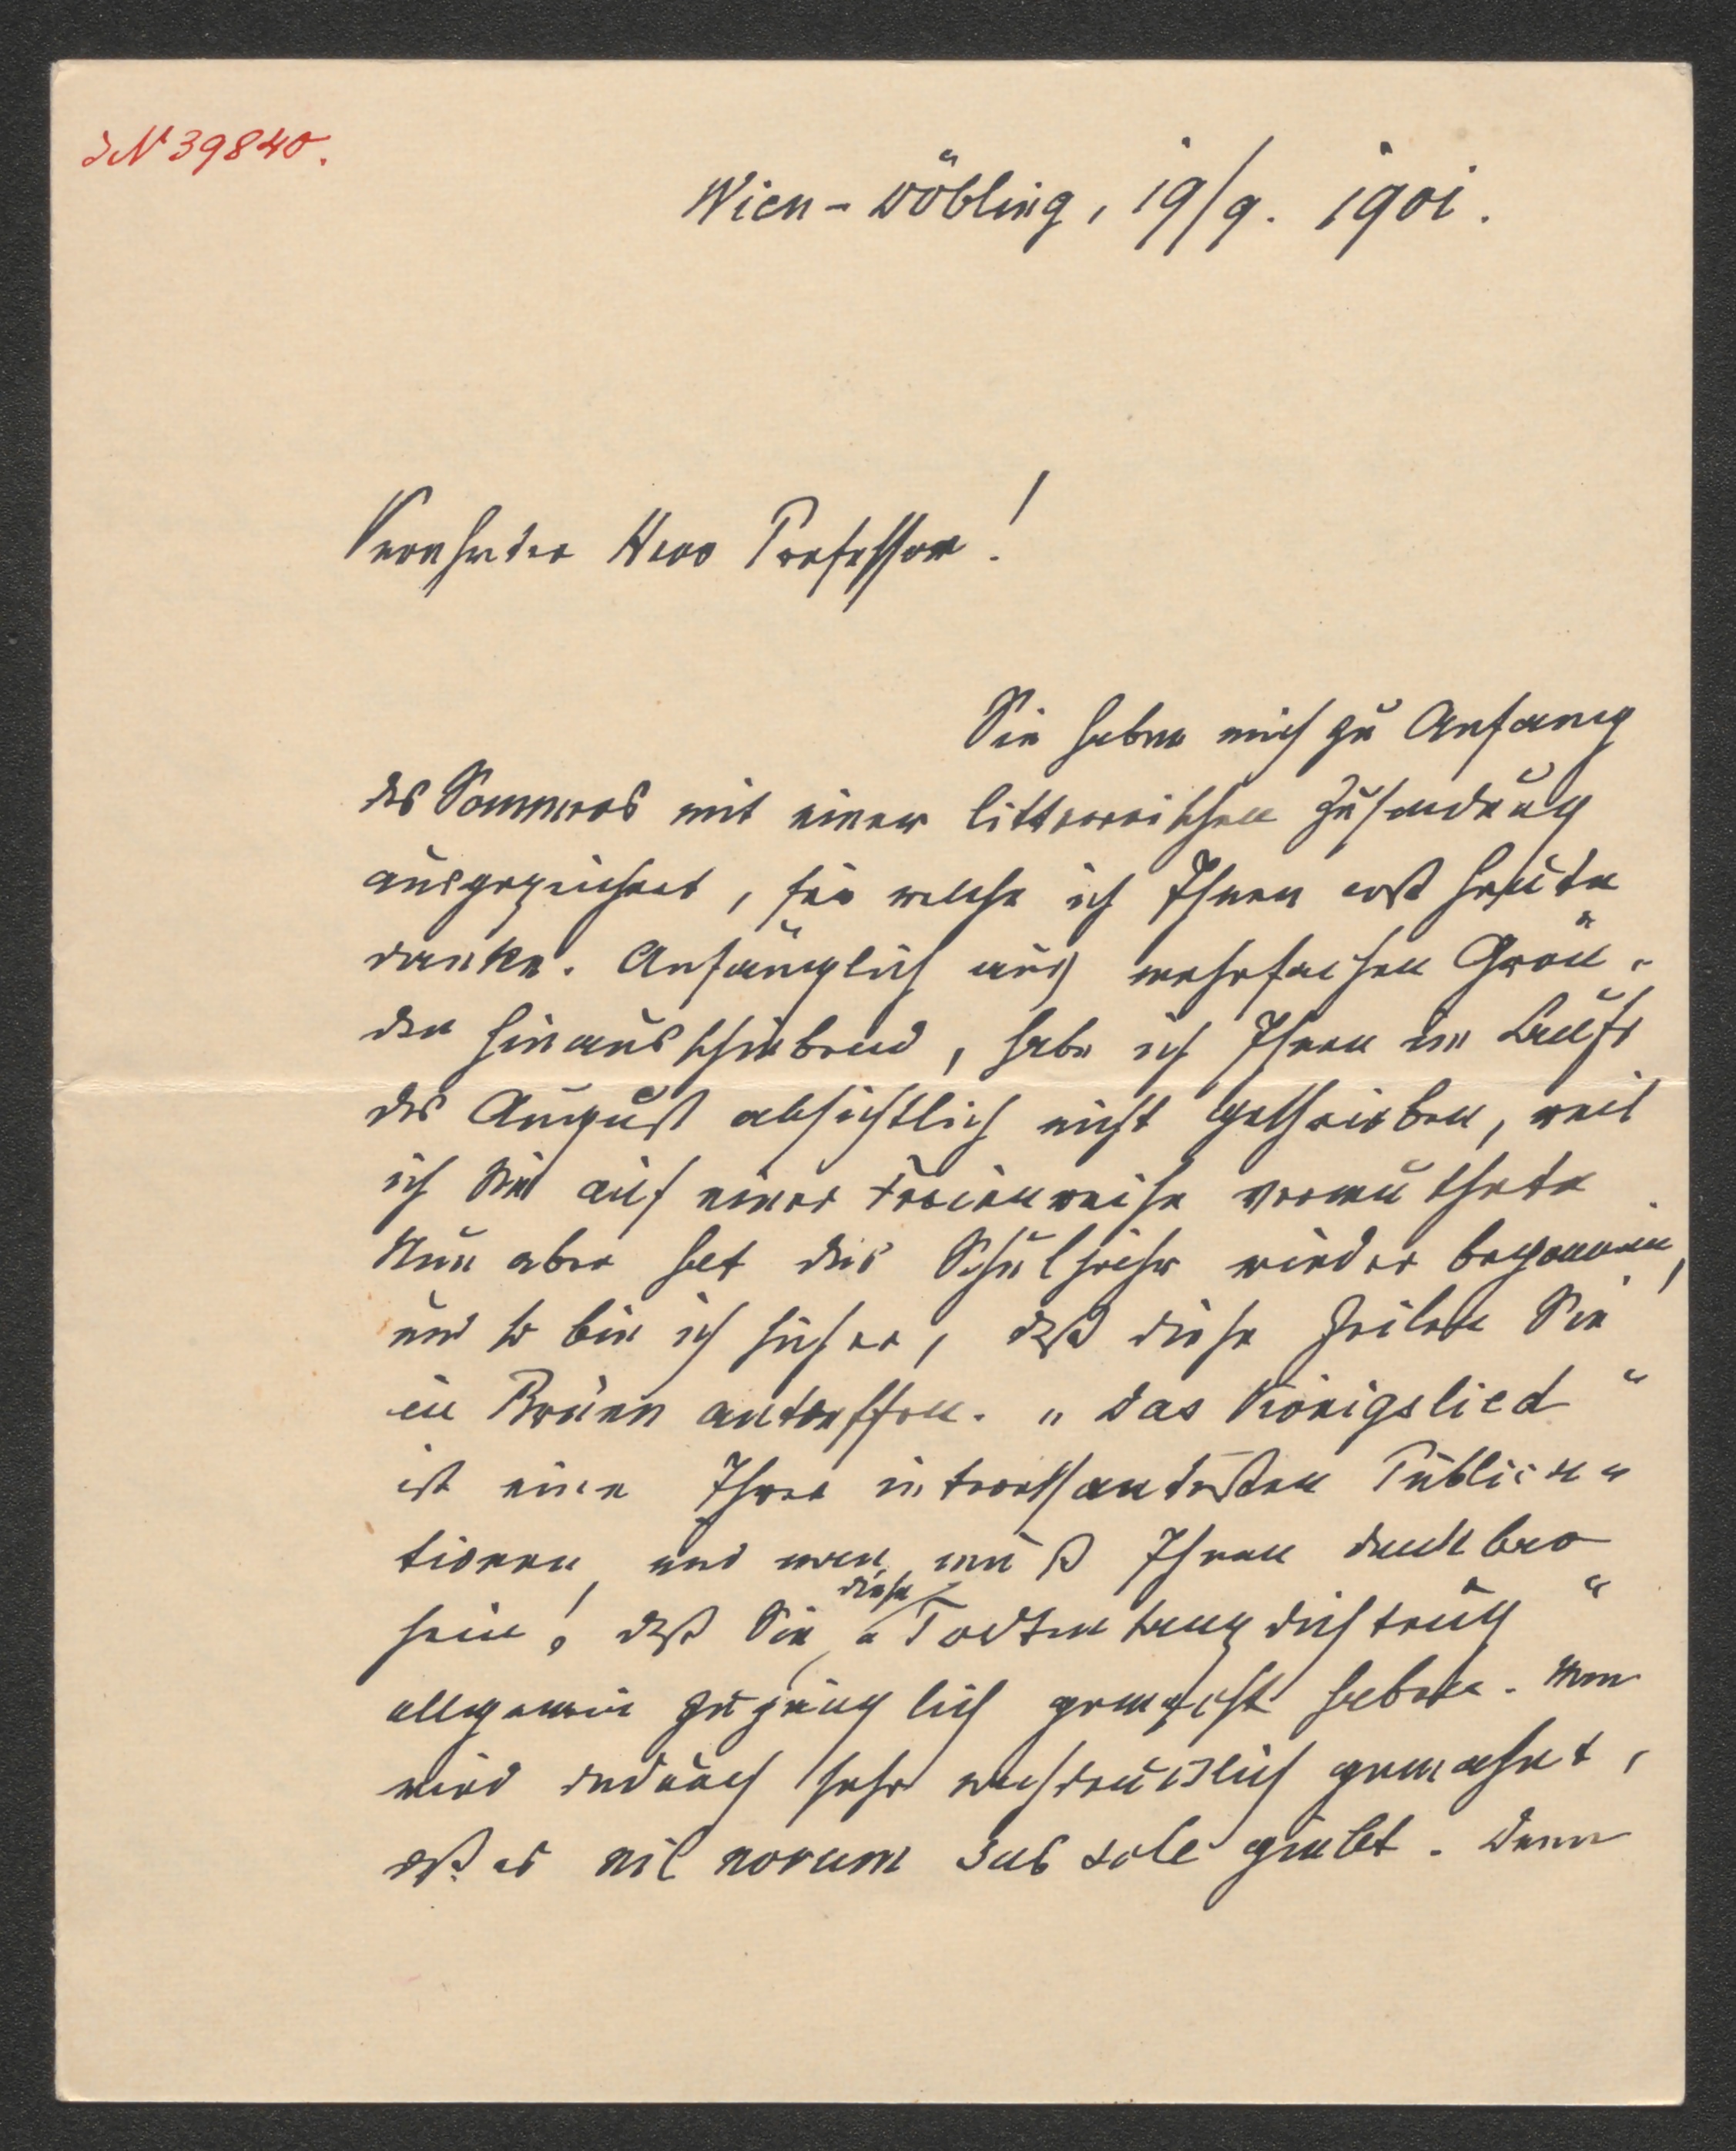 IN 39840.
Wien-Döbling, 19/9. 1901.
Verehrter Herr Professor!
Sie haben mich zu Anfang
des Sommers mit einer litterarischen Zusendung
ausgezeichnet, für welche ich Ihnen erst heute
danke. Anfänglich aus mehrfachen Grün-
den hinausschiebend, habe ich Ihnen im Laufe
des August absichtlich nicht geschrieben, weil
ich Sie auf einer Ferienreise vermuthete.
Nun aber hat das Schuljahr wieder begonnen,
und so bin ich sicher, daß diese Zeilen Sie
in Brünn antreffen. „Das Königslied“
ist eine Ihrer interessantesten Publica-
tionen, und man muß Ihnen dankbar
sein, daß Sie diese „Todtentanzdichtung“
allgemein zugänglich gemacht haben. Man
wird dadurch sehr nachdrücklich gemahnt,
daß es nil novum sub sole giebt. Denn